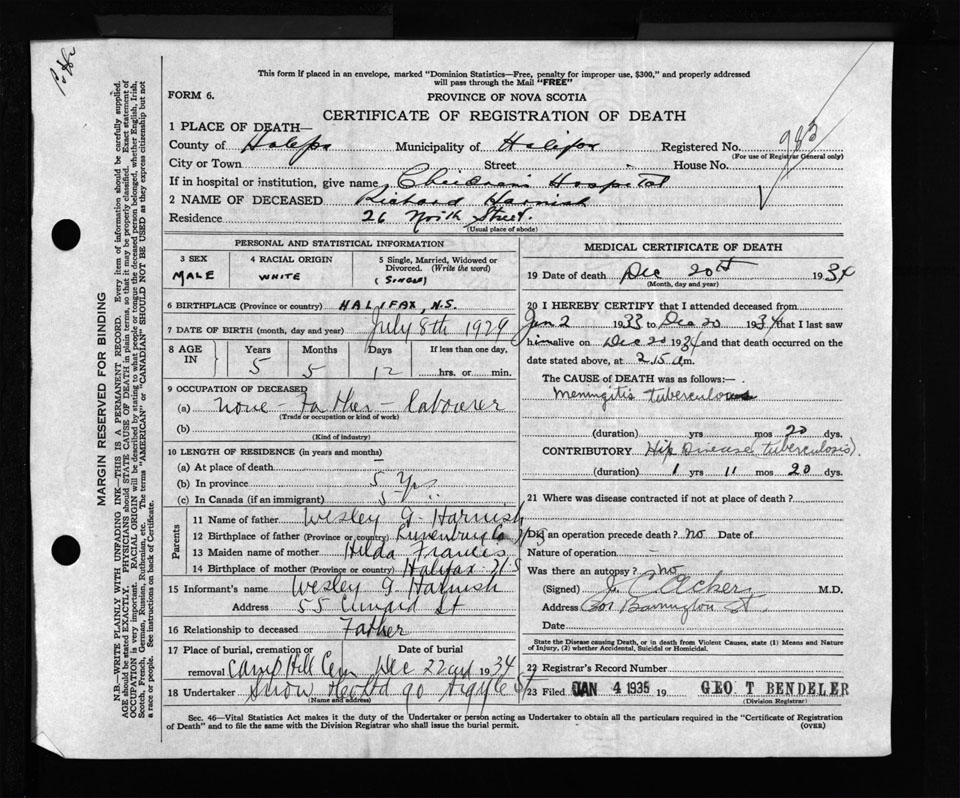 This form if placed in an envelope, marked "Dominion Statistics—Free, penalty for improper use, $300," and properly addressed
will pass through the Mail "FREE"
FORM 6.
PROVINCE OF NOVA SCOTIA
CERTIFICATE OF REGISTRATION OF DEATH
983
1 PLACE OF DEATH—
County of Halifax Municipality of Halifax Registered No.
(For use of Registrar General only)
City or Town Street House No.
If in hospital or institution, give name Children's Hospital
2 NAME OF DECEASED Richard Harnish
Residence 26 North Street.
(Usual place of abode)
PERSONAL AND STATISTICAL INFORMATION
3 SEX 4 RACIAL ORIGIN 5 Single, Married, Widowed or
Divorced. (Write the word)
MALE WHITE (SINGLE)
6 BIRTHPLACE (Province or country) HALIFAX, N.S.
7 DATE OF BIRTH (month, day and year) July 8th 1929
8 AGE IN Years Months Days If less than one day,
5 5 12 hrs. or min.
9 OCCUPATION OF DECEASED
(a) None - Father - labourer
(Trade or occupation or kind of work)
(b)
(Kind of industry)
10 LENGTH OF RESIDENCE (in years and months)
(a) At place of death —
(b) In province 5 Yrs
(c) In Canada (if an immigrant) 5 "
Parents
11 Name of father Wesley G. Harnish
12 Birthplace of father (Province or country) Lunenburg Co N/S
13 Maiden name of mother Hilda Francis
14 Birthplace of mother (Province or country) Halifax N.S
15 Informant's name Wesley G Harnish
Address 55 Cunard St
16 Relationship to deceased Father
17 Place of burial, cremation or removal Camp Hill Cem Date of burial Dec 22nd 1934
18 Undertaker Snow & Co Ltd 90 Argyle St
(Name and address)
MEDICAL CERTIFICATE OF DEATH
19 Date of death Dec 20th 1934
(Month, day and year)
20 I HEREBY CERTIFY that I attended deceased from
Jan 2 1933 to Dec 20 1934 that I last saw
him alive on Dec 20 1934 and that death occurred on the
date stated above, at 2.15 a m.
The CAUSE of DEATH was as follows:—
Meningitis tuberculous
(duration) yrs mos 20 dys.
CONTRIBUTORY Hip Disease (tuberculosis).
(duration) 1 yrs 11 mos 20 dys.
21 Where was disease contracted if not at place of death?
Did an operation precede death? no Date of
Nature of operation —
Was there an autopsy? no
(Signed) M.D.
Address Barrington St.
Date
State the Disease causing Death, or in death from Violent Causes, state (1) Means and Nature
of Injury, (2) whether Accidental, Suicidal or Homicidal.
22 Registrar's Record Number
23 Filed JAN 4 1935 19 GEO T BENDELER
(Division Registrar)
Sec. 46—Vital Statistics Act makes it the duty of the Undertaker or person acting as Undertaker to obtain all the particulars required in the "Certificate of Registration
of Death" and to file the same with the Division Registrar who shall issue the burial permit.
(OVER)
MARGIN RESERVED FOR BINDING
N.B.—WRITE PLAINLY WITH UNFADING INK—THIS IS A PERMANENT RECORD. Every item of information should be carefully supplied.
AGE should be stated EXACTLY. PHYSICIANS should STATE CAUSE OF DEATH in plain terms, so that it may be properly classified. Exact statement of
OCCUPATION is very important. RACIAL ORIGIN will be described by stating to what people or tongue the deceased person belonged, whether English, Irish,
Scotch, French, German, Russian, Ruthenian, etc. The terms "AMERICAN" or "CANADIAN" SHOULD NOT BE USED as they express citizenship but not
a race or people. See instructions on back of Certificate.